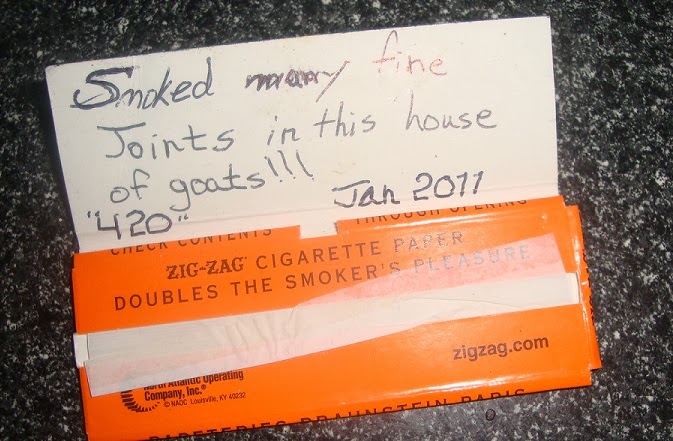 Smoked many fine
Joints in this house
of goats!!!
"420" Jan 2011
CHECK CONTENTS THROUGH OPENING
ZIG-ZAG® CIGARETTE PAPER
DOUBLES THE SMOKER'S PLEASURE
zigzag.com
North Atlantic Operating
Company, Inc.®
© NAOC Louisville, KY 40232
PAPETERIES BRAUNSTEIN PARIS